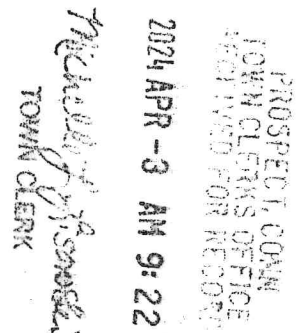 PROSPECT, CONN
TOWN CLERKS OFFICE
RECEIVED FOR RECORD
2024 APR -3 AM 9:22
TOWN CLERK